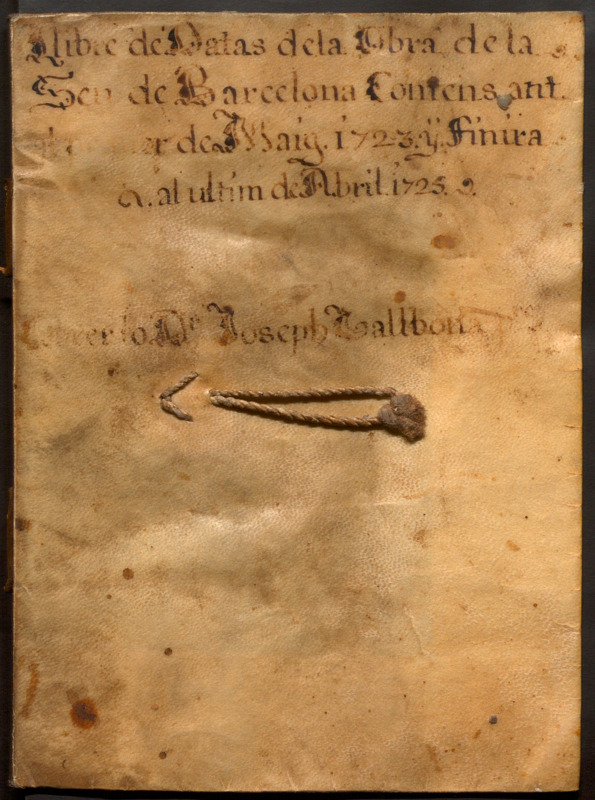 Llibre de Datas de la Obra de la
Seu de Barcelona Comensant
al primer de Maig. 1723. ÿ finira
a. al ultim de Abril. 1725.
Obrer lo Dr. Joseph Vallbona